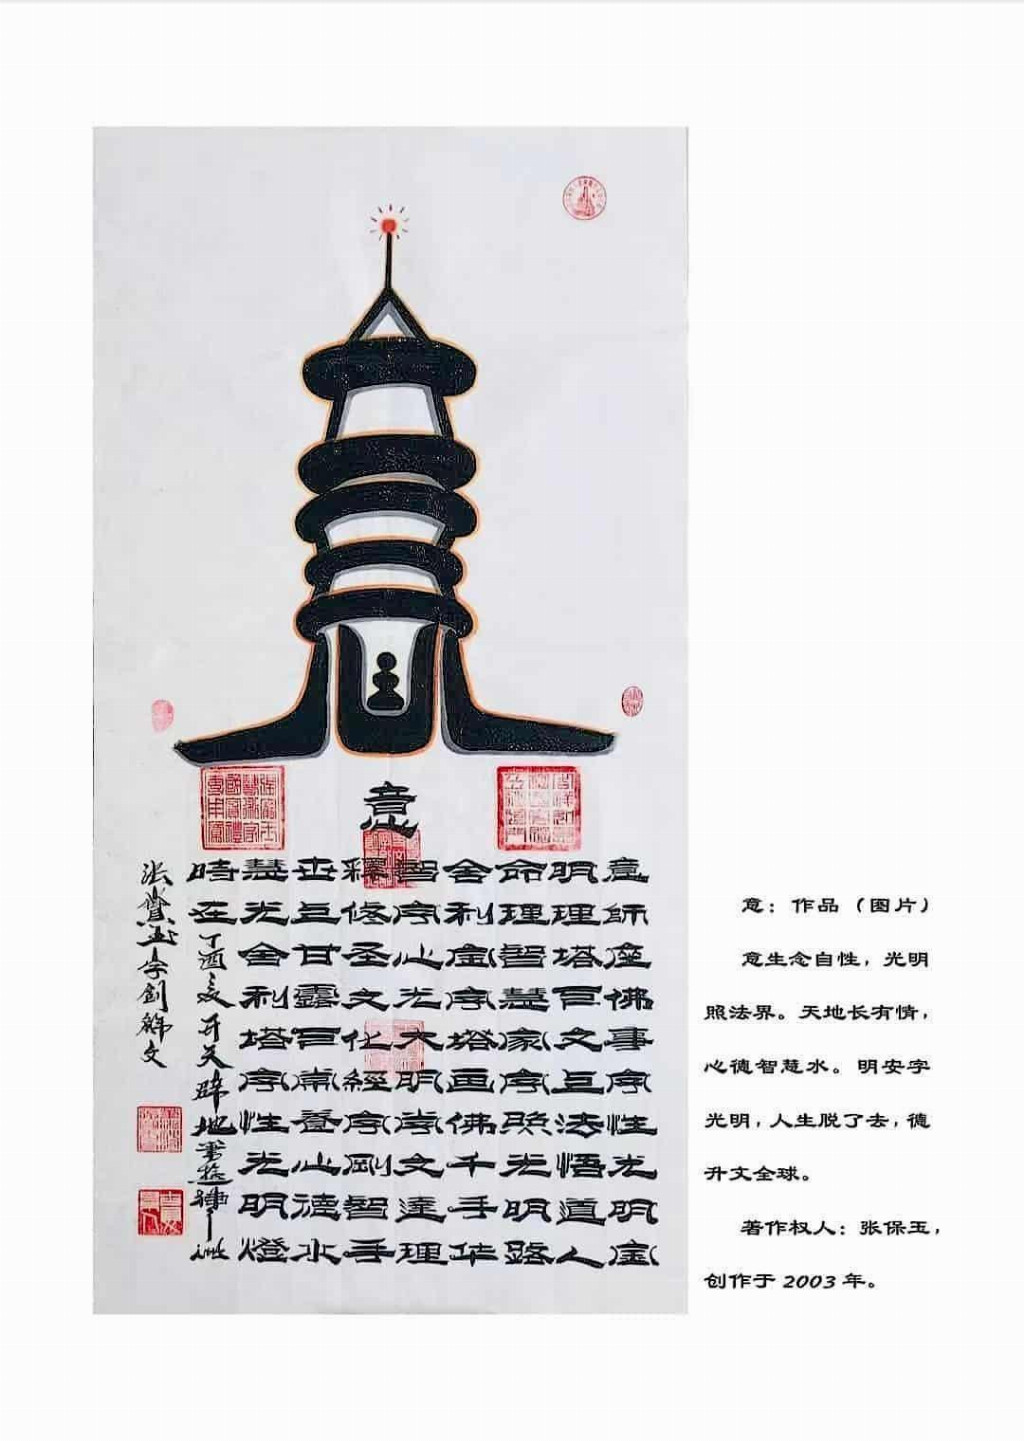 意
意師座佛事字性光明金
明理塔百文巨法悟道人
命理智慧家字照光明路
舍利金字塔画佛千手华
智字心光大明字文達理
釋修圣文化經字剛智手
世巨甘露百常養心德水
慧光舍利塔字性光明燈
時在丁酉开天辟地
字創解文
意：作品（图片）
意生念自性，光明
照法界。天地长有情，
心德智慧水。明安字
光明，人生脱了去，德
升文全球。
著作权人：张保玉，
创作于 2003 年。